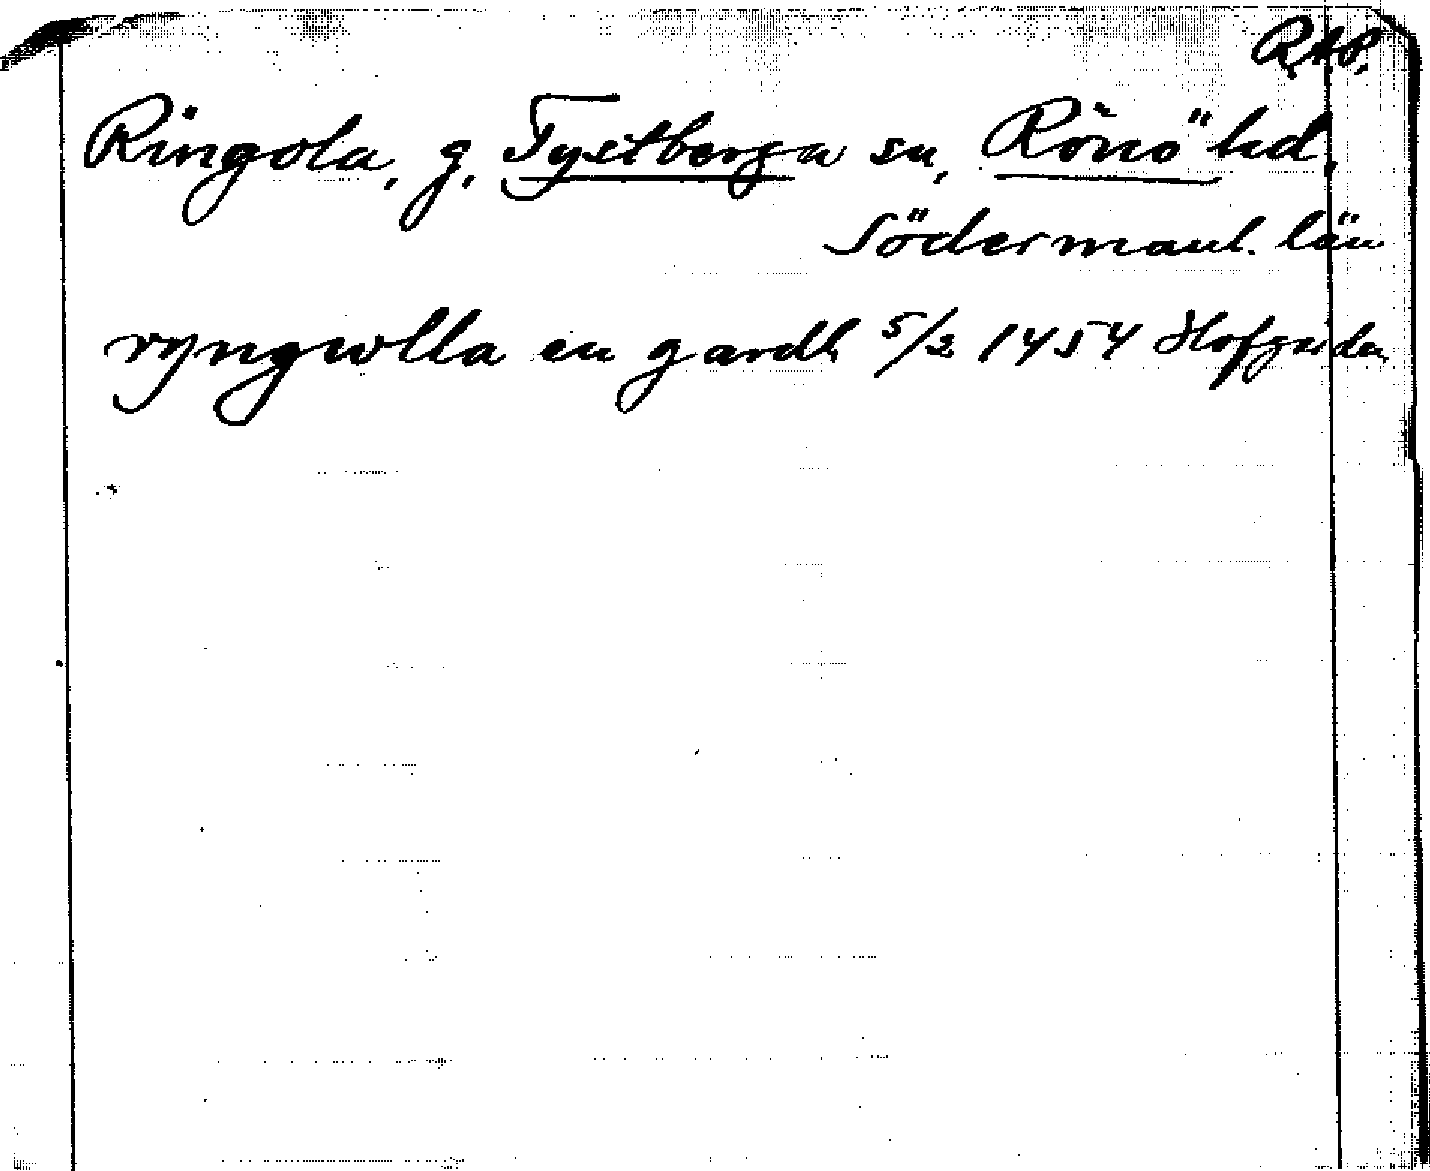 R.A.P.
Ringola, g. Tystberga sn, Rönö hd,
Södermanl. län
ryngwlla en gardh 5/2 1454 Hofgården